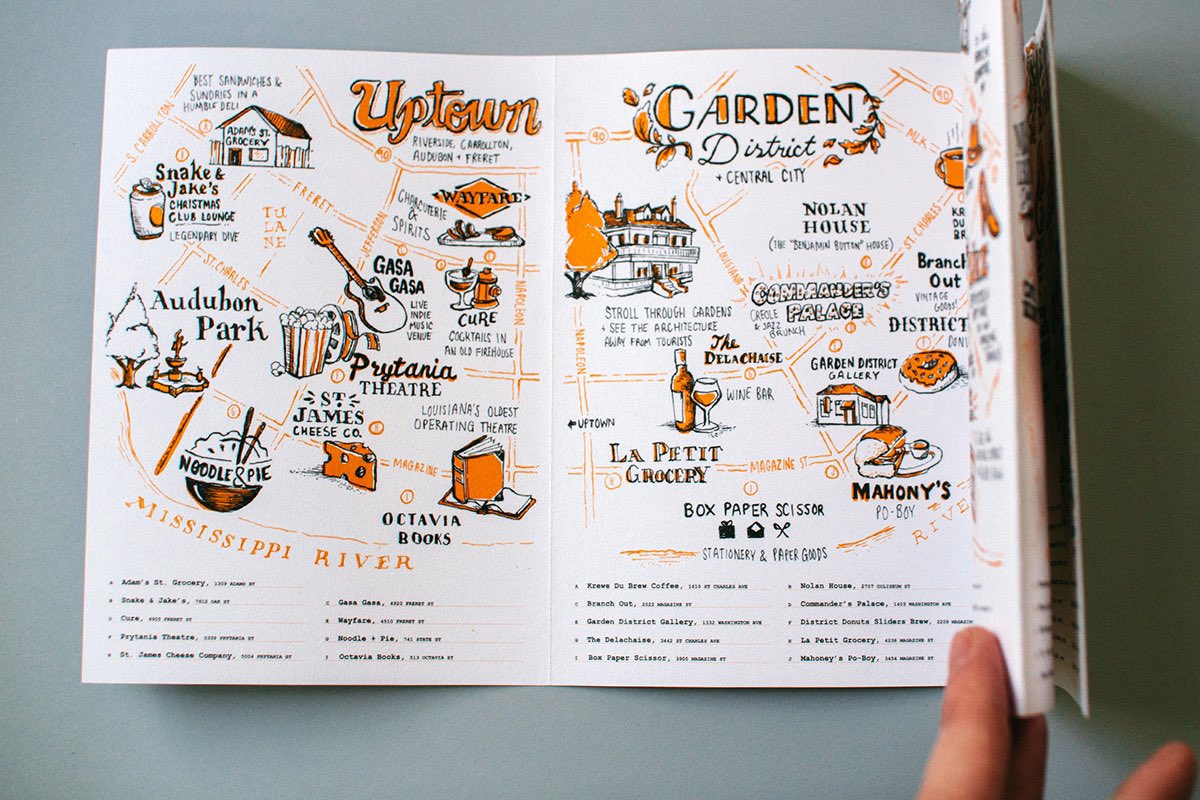 BEST SANDWICHES &
SUNDRIES IN A
HUMBLE DELI
S. CARROLLTON
ADAM'S ST.
GROCERY
Uptown
RIVERSIDE, CARROLLTON,
AUDUBON + FRERET
90
Snake &
Jake's
CHRISTMAS
CLUB LOUNGE
LEGENDARY DIVE
FRERET
TU
LA
NE
JEFFERSON
CHARCUTERIE
&
SPIRITS
WAYFARE
ST. CHARLES
GASA
GASA
LIVE
INDIE
MUSIC
VENUE
CURE
COCKTAILS IN
AN OLD FIREHOUSE
NAPOLEON
Audubon
Park
Prytania
THEATRE
LOUISIANA'S OLDEST
OPERATING THEATRE
ST.
JAMES
CHEESE CO.
NOODLE & PIE
MAGAZINE
OCTAVIA
BOOKS
MISSISSIPPI RIVER
A Adam's St. Grocery, 1309 ADAMS ST
B Snake & Jake's, 7612 OAK ST
C Gasa Gasa, 4920 FRERET ST
D Cure, 4905 FRERET ST
E Wayfare, 4510 FRERET ST
F Prytania Theatre, 5339 PRYTANIA ST
G Noodle + Pie, 741 STATE ST
H St. James Cheese Company, 5004 PRYTANIA ST
I Octavia Books, 513 OCTAVIA ST
90
GARDEN
District
+ CENTRAL CITY
90
MLK
LOUISIANA
NOLAN
HOUSE
(THE "BENJAMIN BUTTON" HOUSE)
ST. CHARLES
STROLL THROUGH GARDENS
+ SEE THE ARCHITECTURE
AWAY FROM TOURISTS
COMMANDER'S
PALACE
CREOLE
& JAZZ
BRUNCH
Branch
Out
VINTAGE
GOODS
DISTRICT
NAPOLEON
The
DELACHAISE
WINE BAR
GARDEN DISTRICT
GALLERY
← UPTOWN
LA PETIT
GROCERY
MAGAZINE ST
MAHONY'S
PO-BOY
BOX PAPER SCISSOR
STATIONERY & PAPER GOODS
RIVE
A Krewe Du Brew Coffee, 1610 ST CHARLES AVE
B Nolan House, 2707 COLISEUM ST
C Branch Out, 2022 MAGAZINE ST
D Commander's Palace, 1403 WASHINGTON AVE
E Garden District Gallery, 1332 WASHINGTON AVE
F District Donuts Sliders Brew, 2209 MAGAZ
G The Delachaise, 3442 ST CHARLES AVE
H La Petit Grocery, 4238 MAGAZINE ST
I Box Paper Scissor, 3900 MAGAZINE ST
J Mahoney's Po-Boy, 3454 MAGAZINE ST